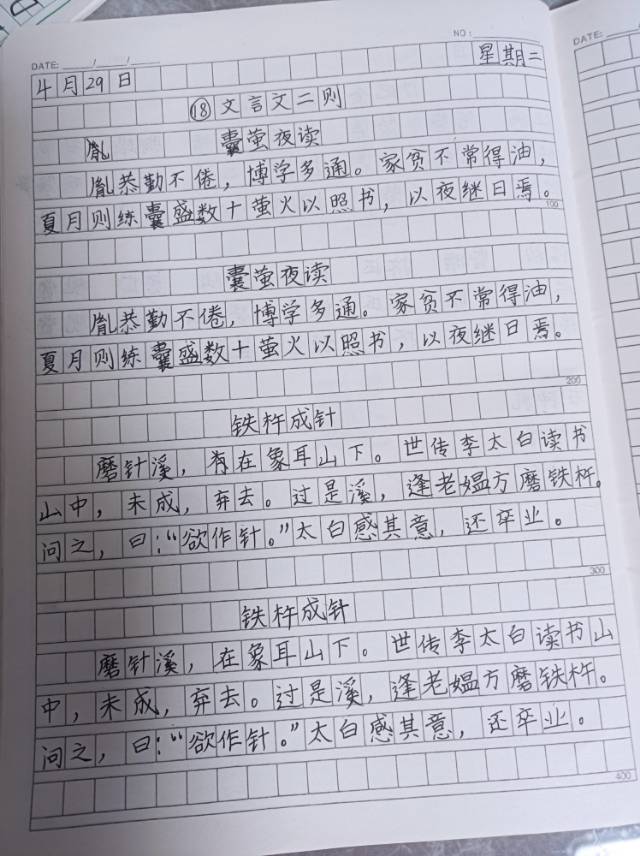 DATE: NO:
DATE:
4月29日 星期二
⑱文言文二则
胤 囊萤夜读
胤恭勤不倦，博学多通。家贫不常得油，
夏月则练囊盛数十萤火以照书，以夜继日焉。
100
囊萤夜读
胤恭勤不倦，博学多通。家贫不常得油，
夏月则练囊盛数十萤火以照书，以夜继日焉。
200
铁杵成针
磨针溪，在象耳山下。世传李太白读书
山中，未成，弃去。过是溪，逢老媪方磨铁杵。
问之，曰：“欲作针。”太白感其意，还卒业。
300
铁杵成针
磨针溪，在象耳山下。世传李太白读书山
中，未成，弃去。过是溪，逢老媪方磨铁杵。
问之，曰：“欲作针。”太白感其意，还卒业。
400